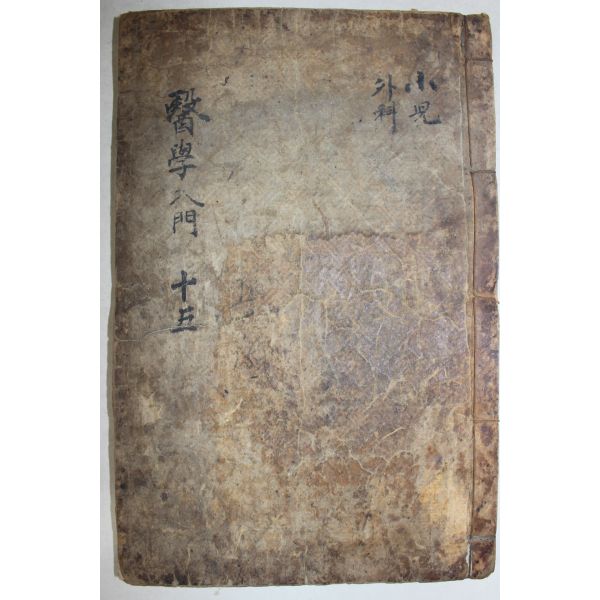 小兒
外科
醫學入門 十五